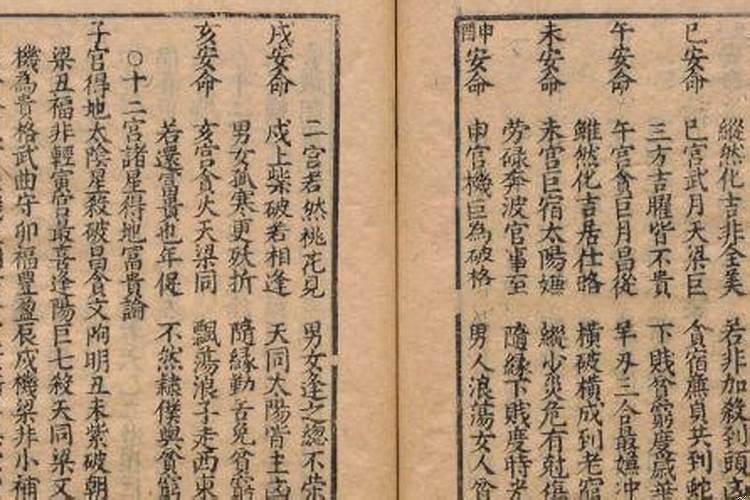 縱然化吉非全美 若非加殺到頭
巳安命 巳宮武月天梁巨 貪宿廉貞共到蛇
三方吉曜皆不貴 下賤貧窮度歲華
午安命 午宮貪巨月昌從 羊刃三合最嫌冲
雖然化吉居仕略 橫破橫成到老窮
未安命 未宮巨宿太陽嫌 縱少災危有尅傷
勞碌奔波官事至 隨緣下賤度時光
申酉安命 申宮機巨為破格 男人浪蕩女人貧
二宮若然桃花見 男女逢之總不榮
戌安命 戌上紫破若相逢 天同太陽皆主凶
男女孤寒更殀折 隨緣勤苦免貧窮
亥安命 亥宮貪火天梁同 飄蕩浪子走西東
若還富貴也年促 不然隸僕與貧窮
○十二宮諸星得地富貴論
子宮得地太陰星殺破昌貪文曲明丑未紫破朝
梁丑福非輕寅宮最喜逢陽巨七殺天同梁又
機為貴格武曲守卯福豐盈辰戌機梁非小補